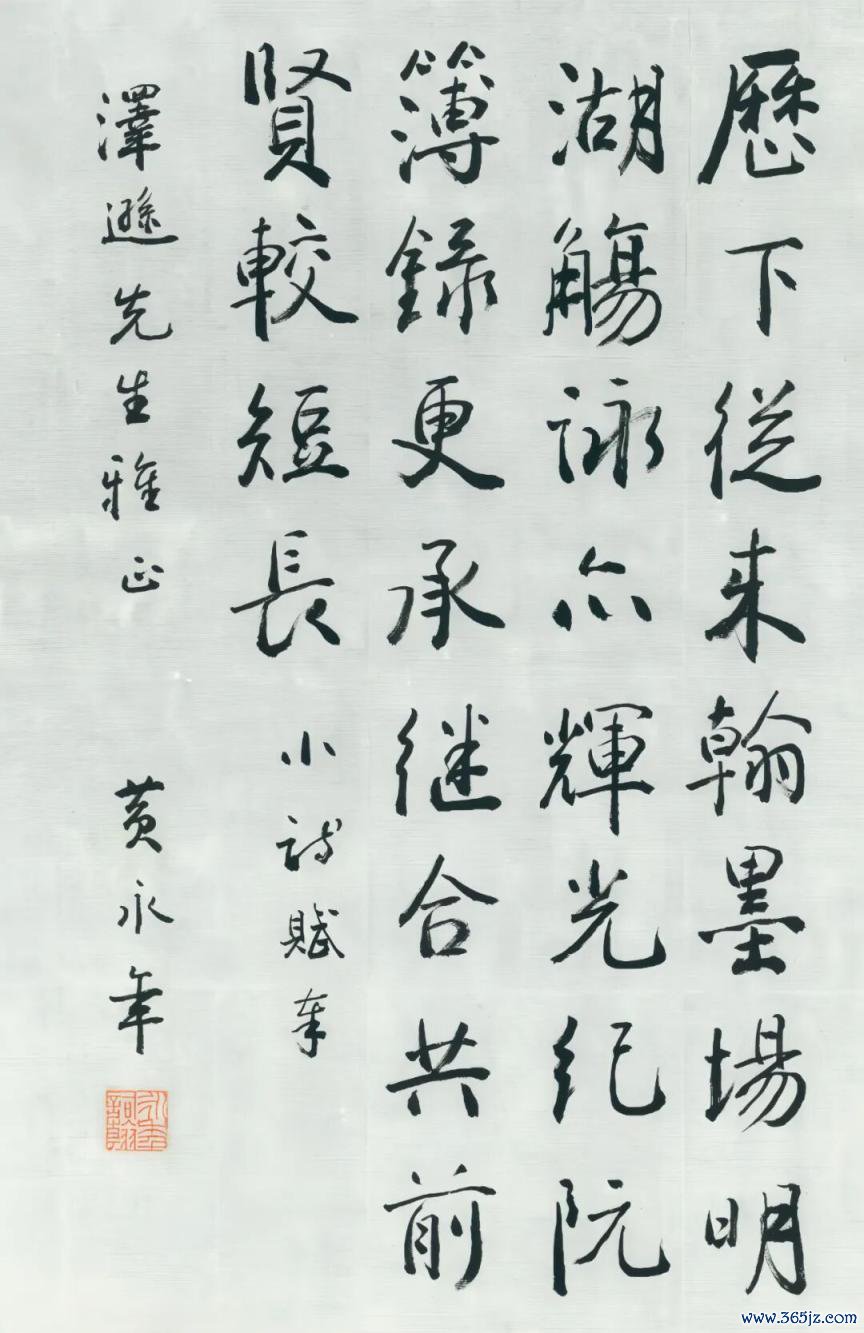 歷下從来翰墨場明
湖觴詠亦輝光纪阮
簿録更承継合共前
賢較短長
小詩賦奉
澤遜先生雅正
黄永年
永年詞翰
www.365jz.com